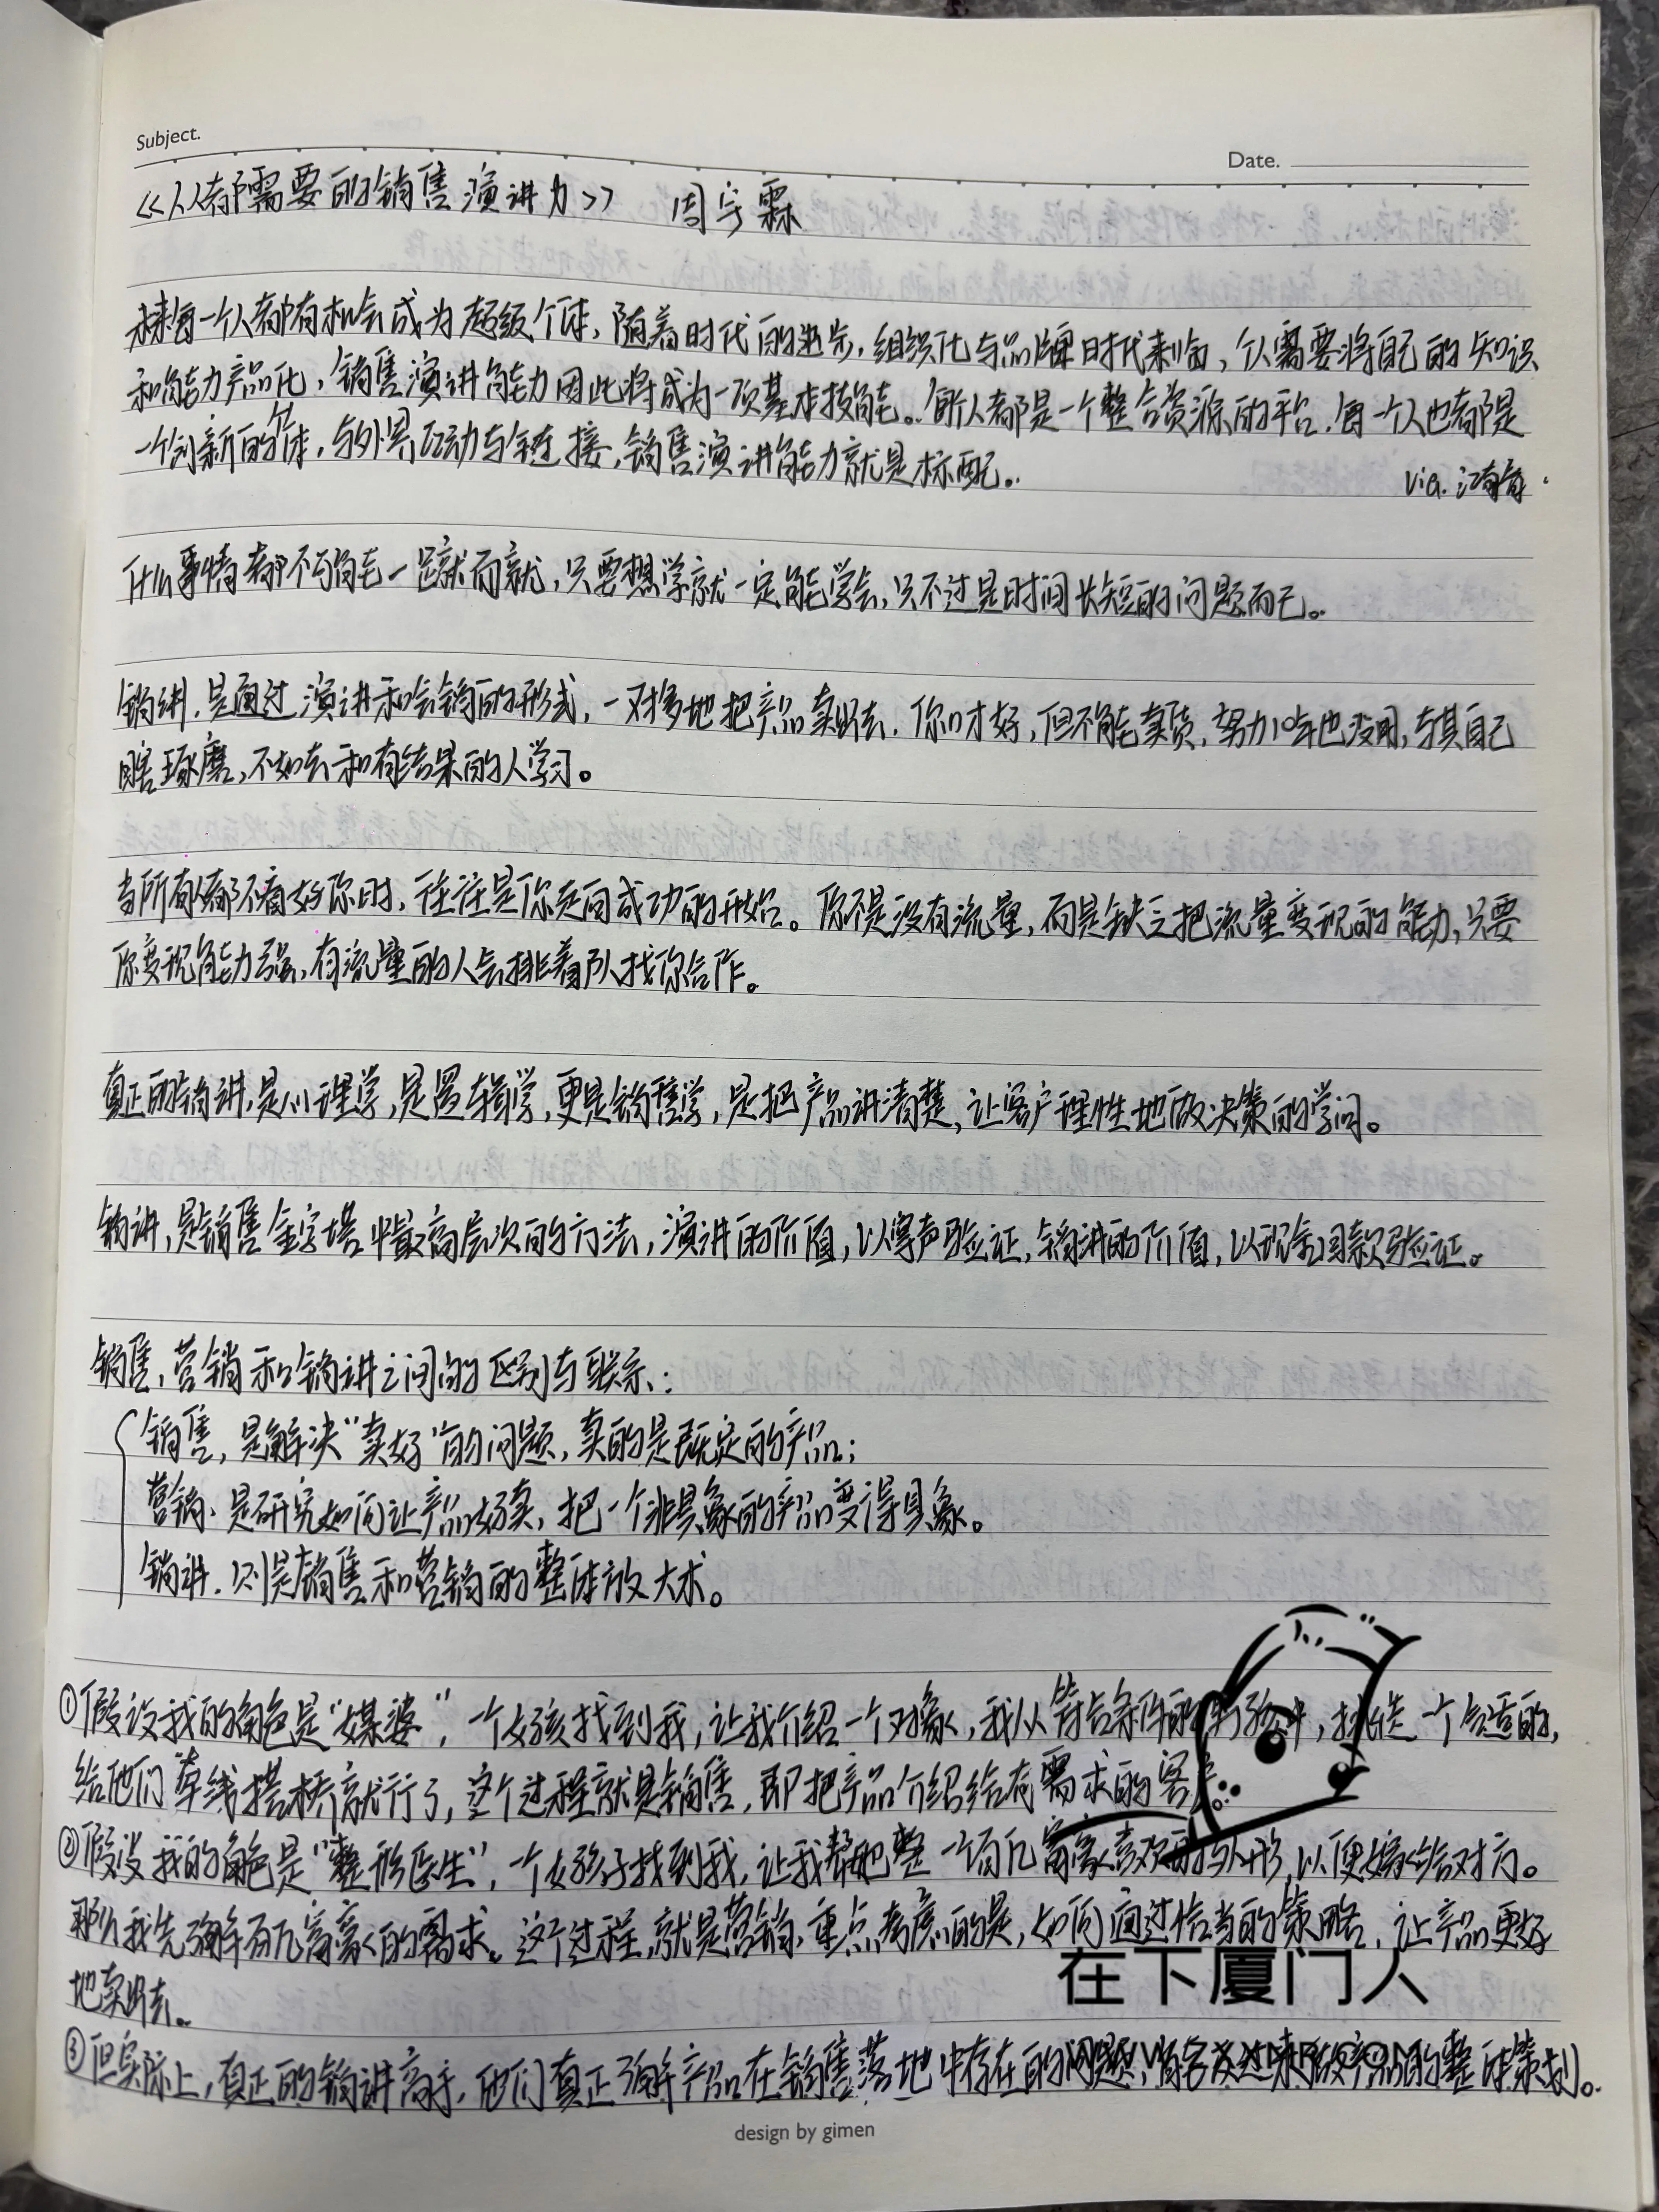 Subject.
Date.
《人人都需要的销售演讲力》 周宇霖
未来每一个人都有机会成为超级个体，随着时代的进步，组织化与品牌时代来临，个人需要将自己的知识
和能力产品化，销售演讲能力因此将成为一项基本技能。每个人都是一个整合资源的平台，每一个人也都是
一个创新的个体，与外界互动与链接，销售演讲能力就是标配。
via. 江南春
什么事情都不可能一蹴而就，只要想学就一定能学会，只不过是时间长短的问题而已。
销讲，是通过演讲和会销的形式，一对多地把产品卖出去。你口才好，但不能卖货，努力10年也没用，与其自己
瞎琢磨，不如去和有结果的人学习。
当所有人都不看好你时，往往是你走向成功的开始。你不是没有流量，而是缺乏把流量变现的能力，只要
你变现能力强，有流量的人会排着队找你合作。
真正的销讲，是心理学，是逻辑学，更是销售学，是把产品讲清楚，让客户理性地做决策的学问。
销讲，是销售金字塔中最高层次的方法，演讲的价值，以掌声验证，销讲的价值，以现金回款验证。
销售，营销和销讲之间的区别与联系：
销售，是解决“卖好”的问题，卖的是既定的产品；
营销，是研究如何让产品好卖，把一个非具象的产品变得具象。
销讲，则是销售和营销的整体放大术。
①假设我的角色是“媒婆”，一个女孩找到我，让我介绍一个对象，我从符合条件的男孩中，挑选一个合适的，
给他们牵线搭桥就行了，这个过程就是销售，即把产品介绍给有需求的客户。
②假设我的角色是“整形医生”，一个女孩子找到我，让我帮她整一个百亿富豪喜欢的外形，以便嫁给对方。
那么我先了解百亿富豪的需求。这个过程，就是营销，重点考虑的是，如何通过恰当的策略，让产品更好
地卖出去。
在下厦门人
③但实际上，真正的销讲高手，他们真正了解产品在销售落地中存在的问题，
的整体策划。
design by gimen